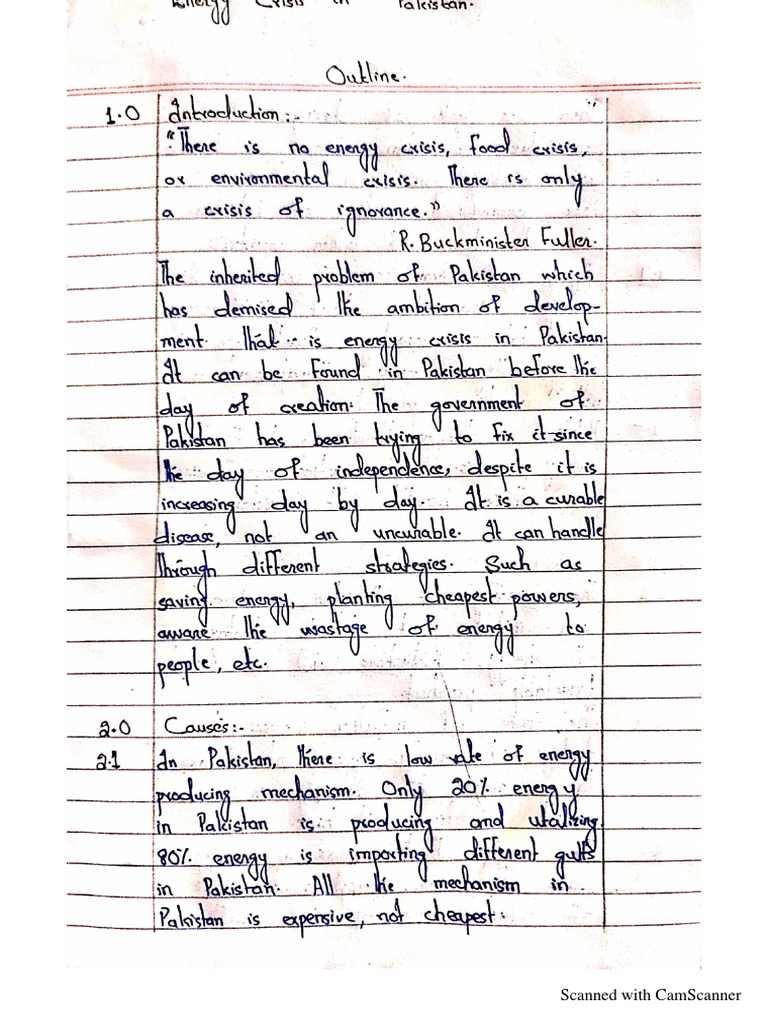 Energy Crisis in Pakistan.
Outline.
1.0 Introduction:-
"There is no energy crisis, food crisis,
or environmental crisis. There is only
a crisis of ignorance."
R. Buckminister Fuller.
The inherited problem of Pakistan which
has demised the ambition of develop-
ment that is energy crisis in Pakistan.
It can be found in Pakistan before the
day of creation. The government of
Pakistan has been trying to fix it since
the day of independence, despite it is
increasing day by day. It is a curable
disease, not an uncurable. It can handle
through different strategies. Such as
saving energy, planting cheapest powers,
aware the wastage of energy to
people, etc.
2.0 Causes:-
2.1 In Pakistan, there is low rate of energy
producing mechanism. Only 20% energy
in Pakistan is producing and utalizing
80% energy is importing different gulfs
in Pakistan. All the mechanism in
Pakistan is expensive, not cheapest.
Scanned with CamScanner